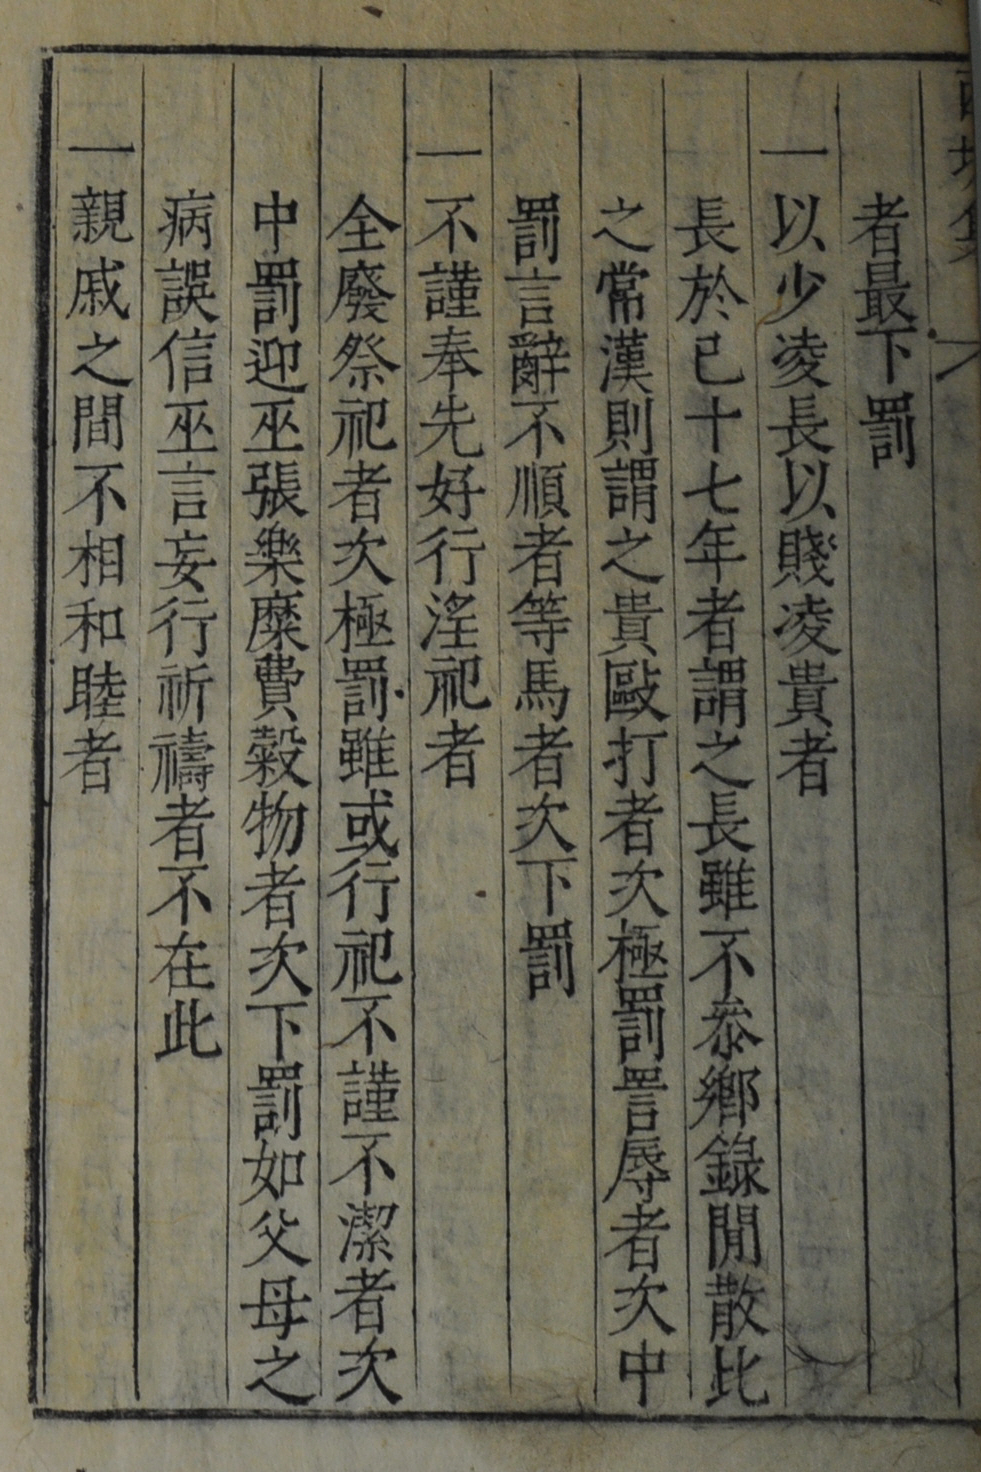 者最下罰
一以少凌長以賤凌貴者
長於己十七年者謂之長雖不叅鄉錄閒散比
之常漢則謂之貴毆打者次極罰詈辱者次中
罰言辭不順者等馬者次下罰
一不謹奉先好行淫祀者
全廢祭祀者次極罰雖或行祀不謹不潔者次
中罰迎巫張樂糜費穀物者次下罰如父母之
病誤信巫言妄行祈禱者不在此
一親戚之間不相和睦者